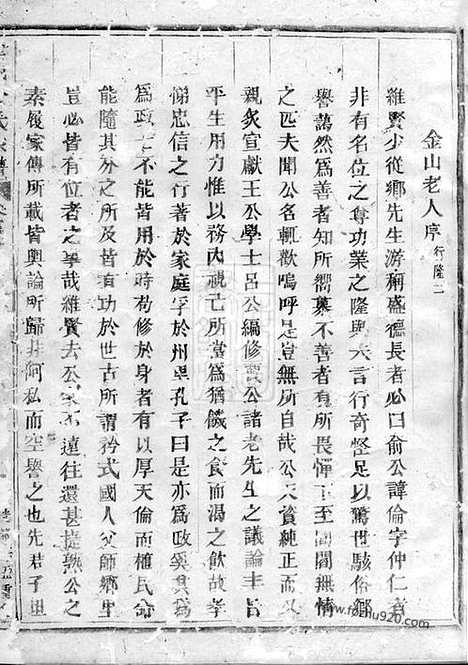 金山老人序 行隆二
維賢少從鄉先生游稱盛德長者必曰俞公諱倫字仲仁者
非有名位之尊功業之隆與夫言行奇怪足以驚世駭俗鄉
譽藹然為善者知所嚮慕不善者有所長憚下至閭閻無情
之匹夫聞公名輒歡嗚呼是豈無所自哉公天資純正而又
親炙宣獻王公學士呂公編修袁公諸老先生之議論丰旨
平生用力惟以務內視己所當為猶饑之食而渴之飲故孝
悌忠信之行著於家庭孚於州里孔子曰是亦為政奚其為
為政士不能皆用於時苟修於身者有以厚天倫而植民命
能隨其分之所及皆有功於世古所謂矜式國人父師鄉里
豈必皆有位者之事哉維賢去公家不遠往還甚捷熟公之
素履家傳所載皆輿論所歸非阿私而空譽之也先君子祖
fotohu920.com